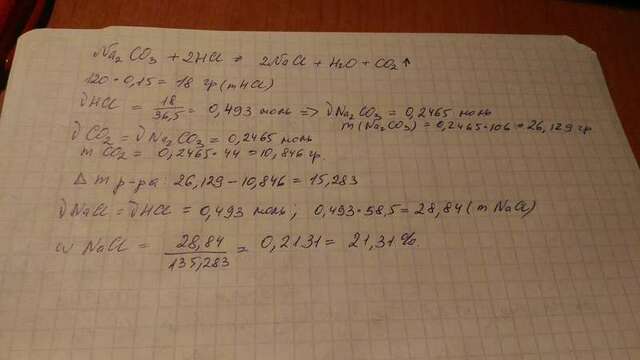 Na₂CO₃ + 2HCl = 2NaCl + H₂O + CO₂↑
120 · 0,15 = 18 гр (mHCl)
νHCl = 18/36,5 = 0,493 моль => νNa₂CO₃ = 0,2465 моль
m(Na₂CO₃) = 0,2465·106 = 26,129 гр
νCO₂ = νNa₂CO₃ = 0,2465 моль
mCO₂ = 0,2465·44 = 10,846 гр.
Δm р-ра: 26,129 − 10,846 = 15,283
νNaCl = νHCl = 0,493 моль; 0,493·58,5 = 28,84 (mNaCl)
ω NaCl = 28,84/135,283 = 0,2131 = 21,31 %.